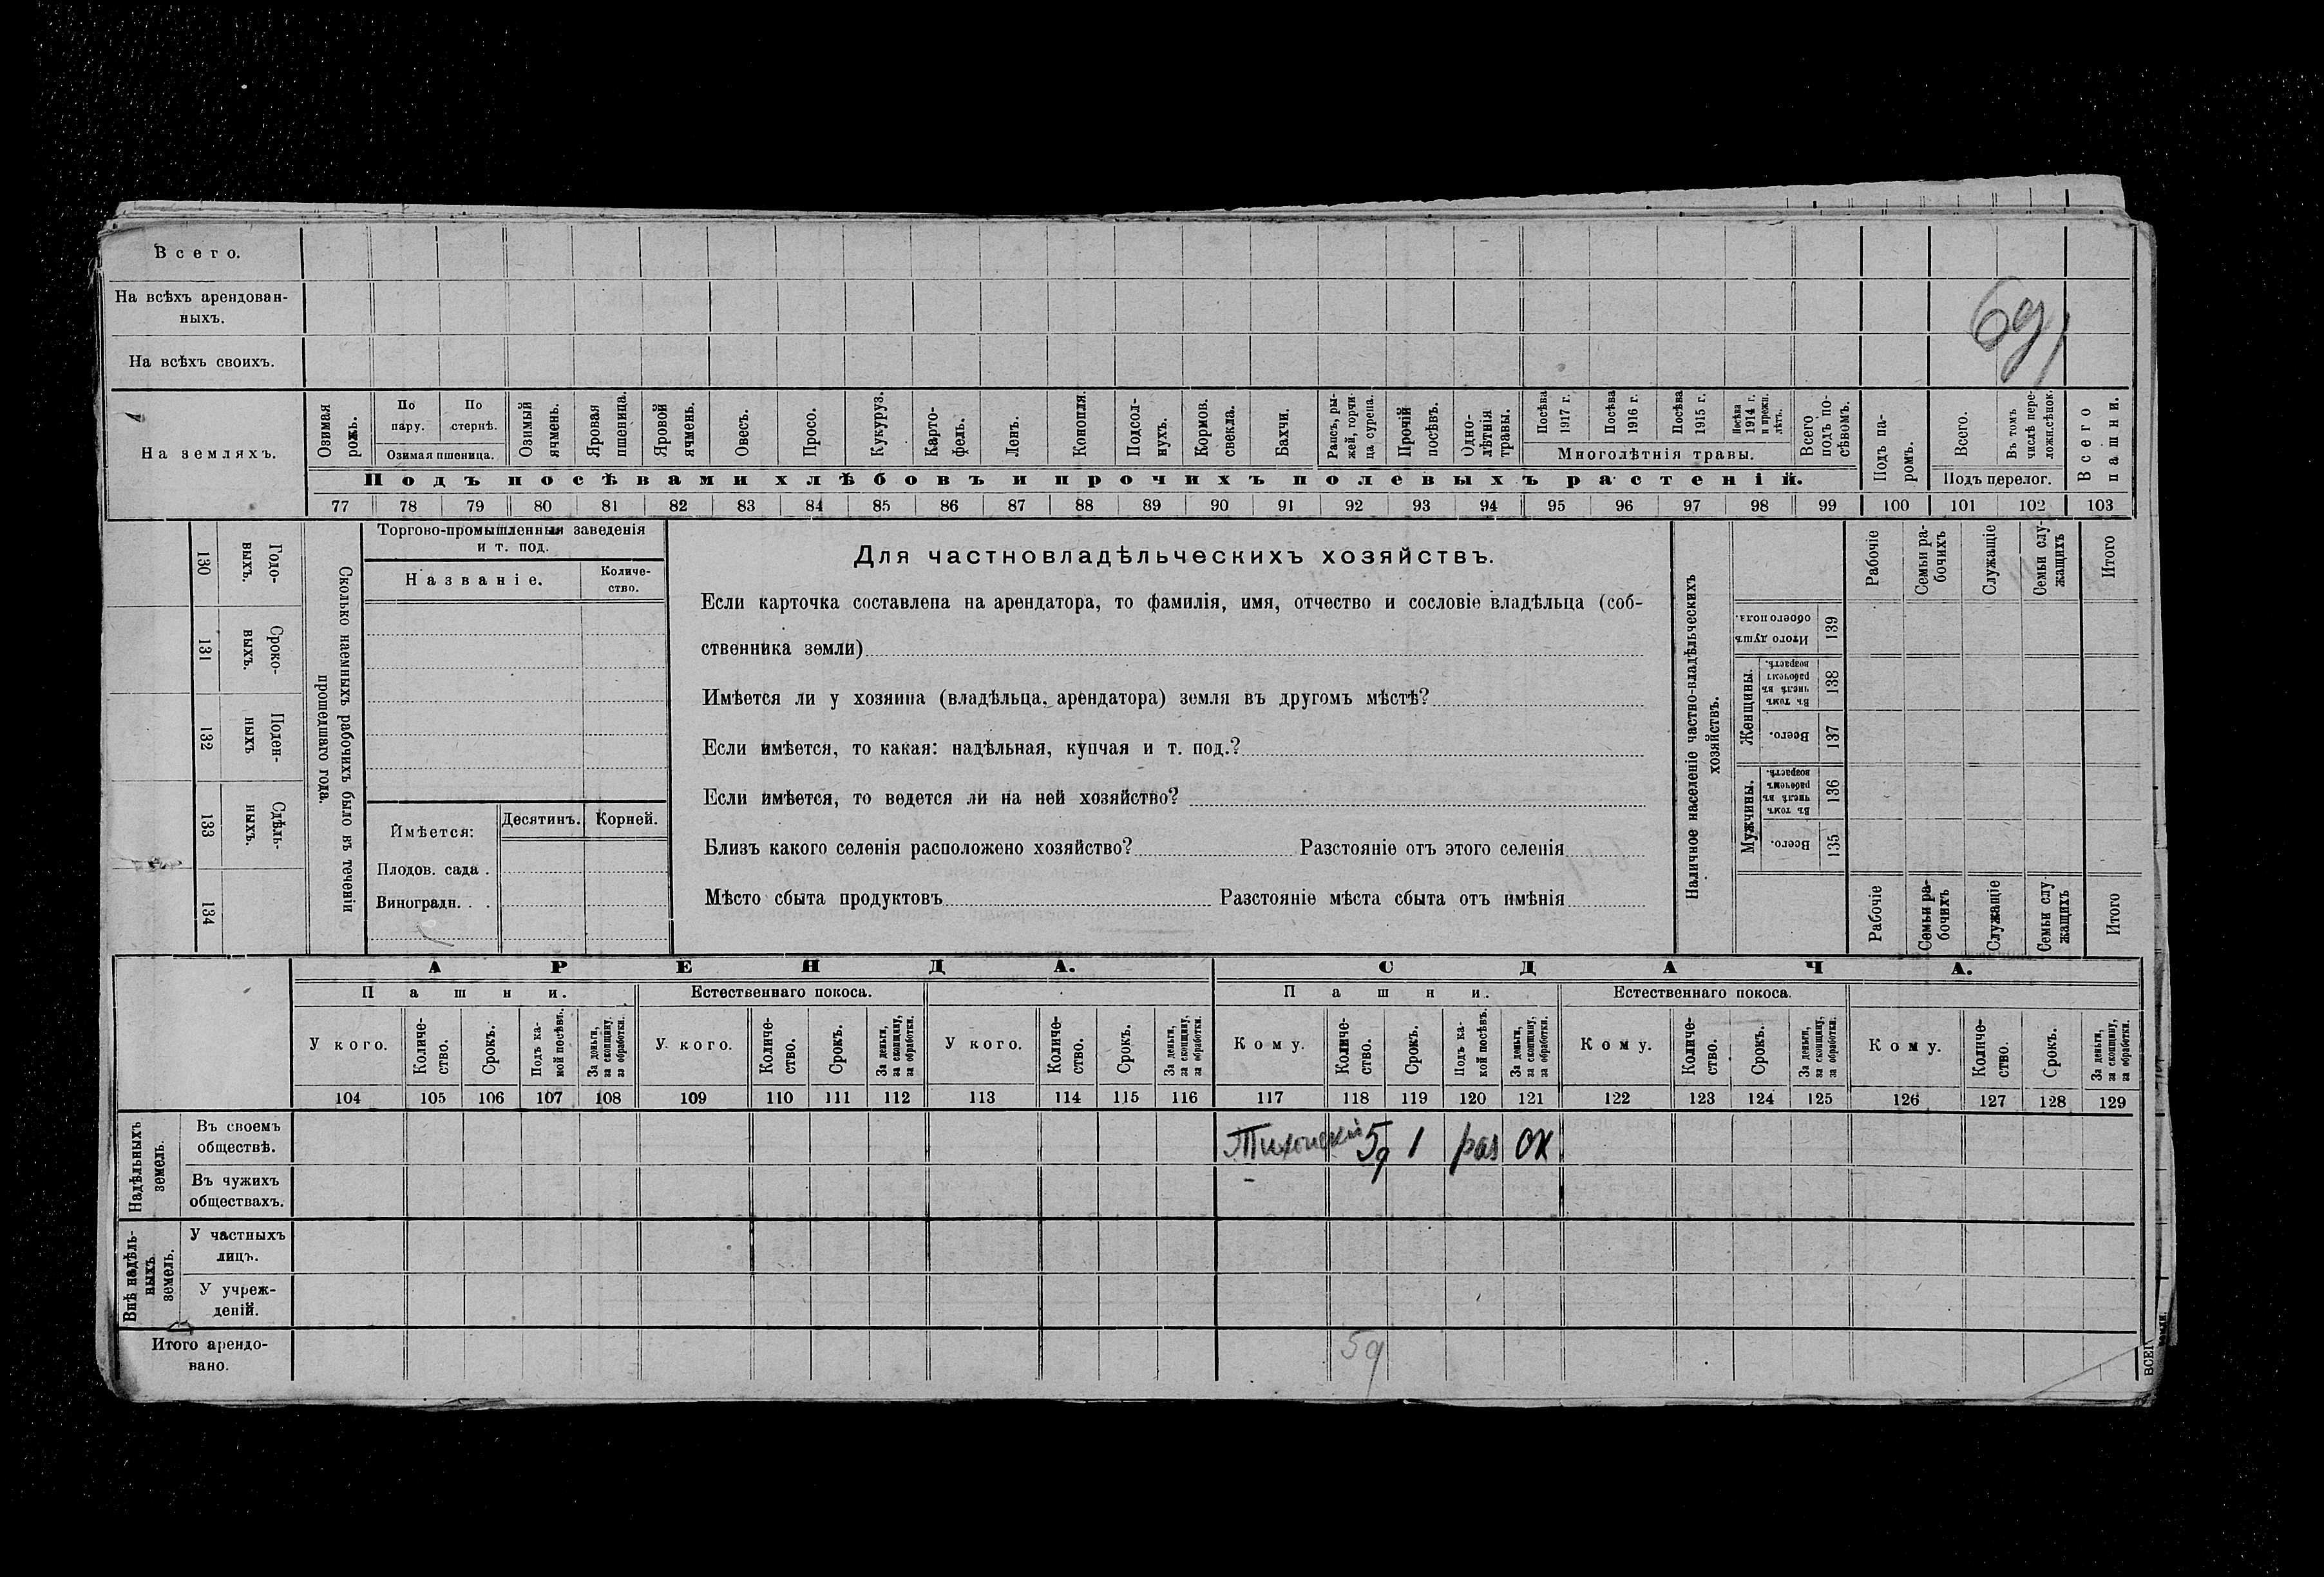 Всего.
На всѣхъ арендован-
ныхъ.
На всѣхъ своихъ.
На земляхъ.
Озимая
рожь.
По
пару.
По
стернѣ.
Озимая пшеница.
Озимый
ячмень.
Яровая
пшеница.
Яровой
ячмень.
Овесъ.
Просо.
Кукуруз.
Карто-
фель.
Ленъ.
Конопля.
Подсол-
нухъ.
Кормов.
свекла.
Бахчи.
Рапсъ, ры-
жей, горчи-
ца, сурепа.
Прочій
посѣвъ.
Одно-
лѣтнія
травы.
Посѣва
1917 г.
Посѣва
1916 г.
Посѣва
1915 г.
Посѣва
1914 г.
и прежн.
лѣтъ.
Многолѣтнія травы.
Всего
подъ по-
сѣвомъ.
Подъ па-
ромъ.
Всего.
Въ томъ
числѣ пере-
ложн.сѣнок.
Подъ перелог.
Всего
пашни.
Подъ посѣвами хлѣбовъ и прочихъ полевыхъ растеній.
77 78 79 80 81 82 83 84 85 86 87 88 89 90 91 92 93 94 95 96 97 98 99 100 101 102 103
130
Годо-
выхъ.
131
Сроко-
выхъ.
132
Поден-
ныхъ
133
Сдѣль-
ныхъ.
134
Сколько наемныхъ рабочихъ было въ теченіи
прошедшаго года.
Торгово-промышленныя заведенія
и т. под.
Названіе.
Количе-
ство.
Имѣется:
Десятинъ.
Корней.
Плодов. сада .
Виноградн. . .
Для частновладѣльческихъ хозяйствъ.
Если карточка составлена на арендатора, то фамилія, имя, отчество и сословіе владѣльца (соб-
ственника земли)
Имѣется ли у хозяина (владѣльца, арендатора) земля въ другомъ мѣстѣ?
Если имѣется, то какая: надѣльная, купчая и т. под.?
Если имѣется, то ведется ли на ней хозяйство?
Близъ какого селенія расположено хозяйство? Разстояніе отъ этого селенія
Мѣсто сбыта продуктовъ Разстояніе мѣста сбыта отъ имѣнія
Наличное населеніе частно-владѣльческихъ
хозяйствъ.
Рабочіе
Семьи ра-
бочихъ
Служащіе
Семьи слу-
жащихъ
Итого
Итого душъ
обоего пола.
139
Женщины.
Въ томъ
числѣ въ
рабочемъ
возрастѣ.
138
Всего.
137
Мужчины.
Въ томъ
числѣ въ
рабочемъ
возрастѣ.
136
Всего.
135
Рабочіе
Семьи ра-
бочихъ
Служащіе
Семьи слу-
жащихъ
Итого
АРЕНДА.
СДАЧА.
Пашни.
Естественнаго покоса.
Пашни.
Естественнаго покоса.
У кого.
Количе-
ство.
Срокъ.
Подъ ка-
кой посѣвъ.
За деньги,
за скопщину,
за обработки.
У кого.
Количе-
ство.
Срокъ.
За деньги,
за скопщину,
за обработки.
У кого.
Количе-
ство.
Срокъ.
За деньги,
за скопщину,
за обработки.
Кому.
Количе-
ство.
Срокъ.
Подъ ка-
кой посѣвъ.
За деньги,
за скопщину,
за обработки.
Кому.
Количе-
ство.
Срокъ.
За деньги,
за скопщину,
за обработки.
Кому.
Количе-
ство.
Срокъ.
За деньги,
за скопщину,
за обработки.
104 105 106 107 108 109 110 111 112 113 114 115 116 117 118 119 120 121 122 123 124 125 126 127 128 129
Надѣльныхъ
земель.
Въ своемъ
обществѣ.
5д 1 раз
Въ чужихъ
обществахъ.
Внѣ надѣль-
ныхъ
земель.
У частныхъ
лицъ.
У учреж-
деній.
Итого арендо-
вано.
5д